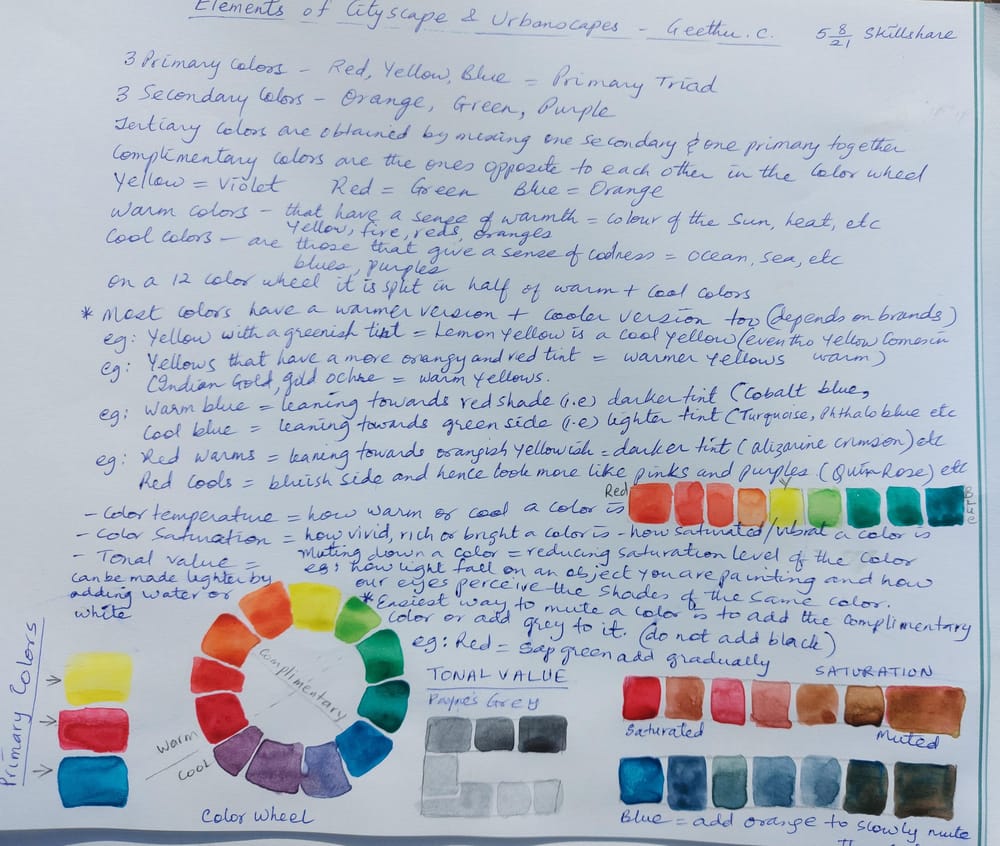 Elements of Cityscape & Urbanscapes - Geethu.C. 5 8/21 Skillshare
3 Primary Colors - Red, Yellow, Blue = Primary Triad
3 Secondary Colors - Orange, Green, Purple
Tertiary colors are obtained by mixing one secondary & one primary together
Complimentary colors are the ones opposite to each other in the color wheel
Yellow = Violet Red = Green Blue = Orange
Warm colors - that have a sense of warmth = colour of the sun, heat, etc
Yellow, fire, reds, oranges
Cool colors - are those that give a sense of coolness = ocean, sea, etc
blues, purples
on a 12 color wheel it is split in half of warm + cool colors
* Most colors have a warmer version + cooler version too (depends on brands)
eg: Yellow with a greenish tint = Lemon Yellow is a cool yellow (even tho yellow comes in warm)
eg: Yellows that have a more orangy and red tint = warmer yellows
(Indian Gold, gold ochre = warm yellows.
eg: Warm blue = leaning towards red shade (i.e) darker tint (Cobalt blue,
Cool blue = leaning towards green side (i.e) lighter tint (Turquoise, Phthalo blue etc
eg: Red warms = leaning towards orangish yellowish = darker tint (alizarine crimson) etc
Red cools = bluish side and hence look more like pinks and purples (Quin Rose) etc
Red
Blue
- Color temperature = how warm or cool a color is
- Color Saturation = how vivid, rich or bright a color is - how saturated/vibrat a color is
Muting down a color = reducing saturation level of the color
- Tonal value = eg: how light fall on an object you are painting and how
our eyes perceive the shades of the same color.
can be made lighter by
adding water or
white
* Easiest way to mute a color is to add the complimentary
color or add grey to it. (do not add black)
eg: Red = Sap green add gradually
Primary Colors
Complimentary
Warm
Cool
Color Wheel
TONAL VALUE
Payne's Grey
SATURATION
Saturated
Muted
Blue = add orange to slowly mute